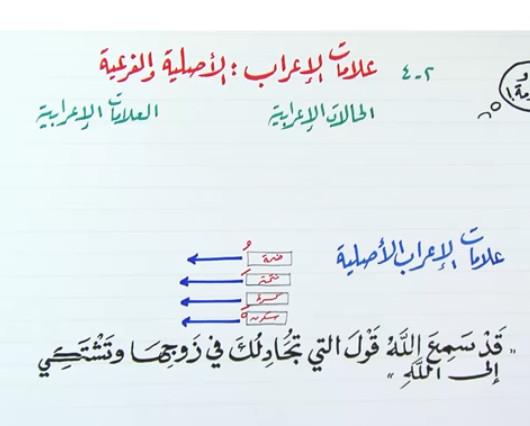 ٢-٤ علامات الإعراب : الأصلية والفرعية
الحالات الإعرابية
العلامات الإعرابية
علامات الإعراب الأصلية
ضمة
فتحة
كسرة
سكون
"قَدْ سَمِعَ اللَّهُ قَوْلَ التي تُجَادِلُكَ في زَوجِهَا وتَشْتَكِي
إلى اللَّهِ"